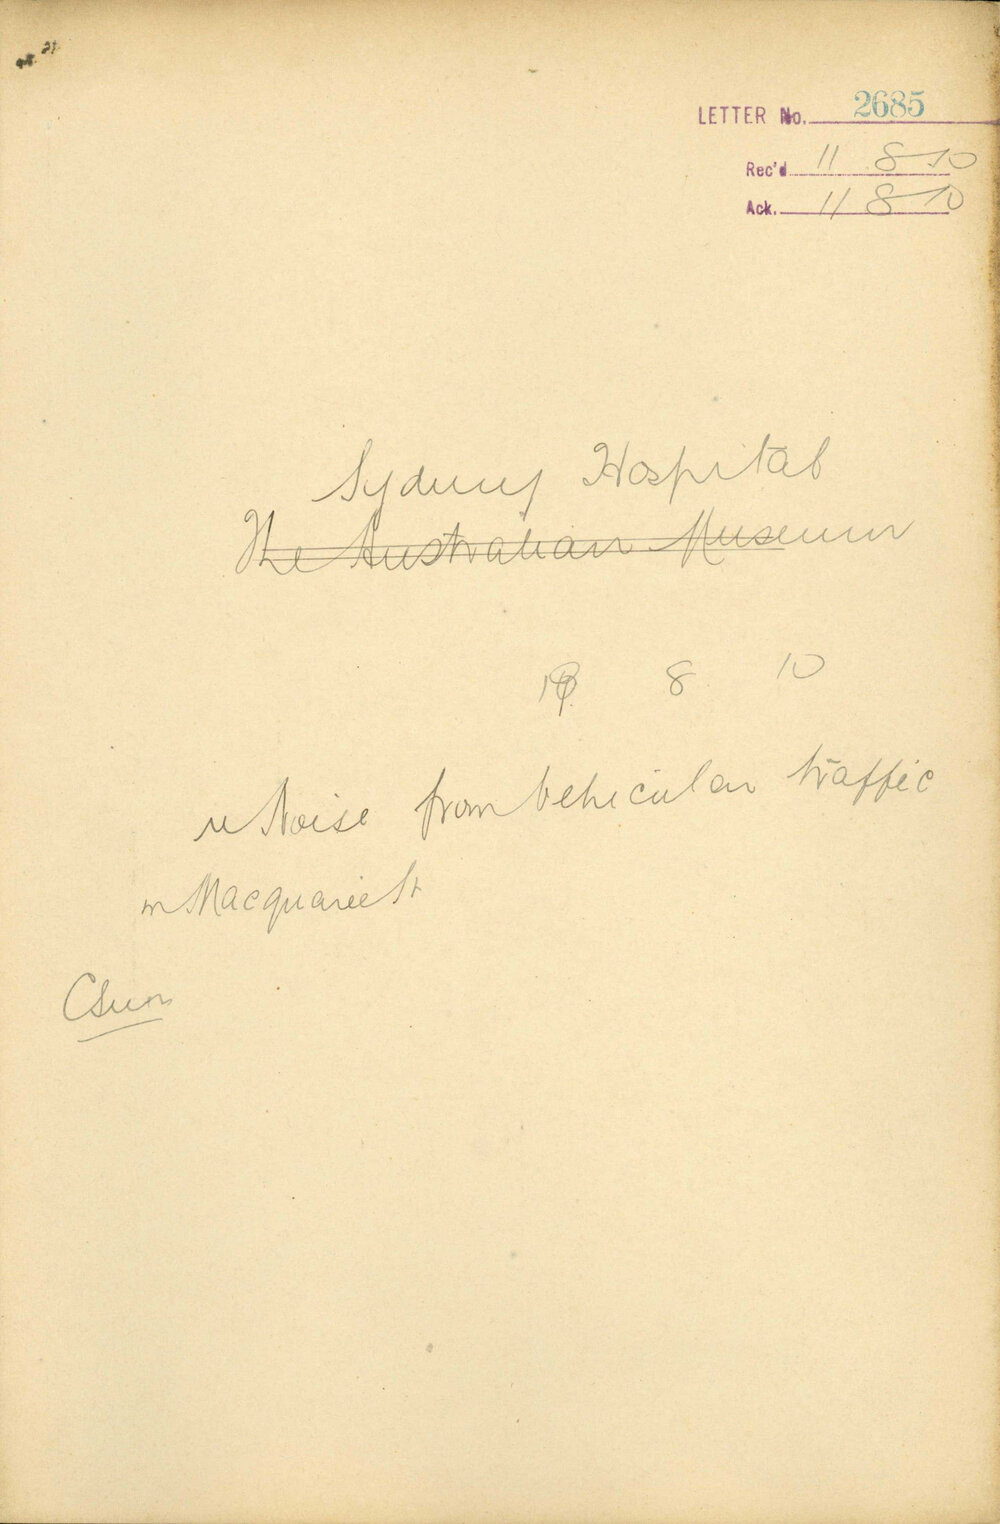 LETTER No. 2685
Rec'd 11 8 10
Ack. 11 8 10
Sydney Hospital
The Australian Museum
8 10
re Noise from vehicular traffic
in Macquarie St